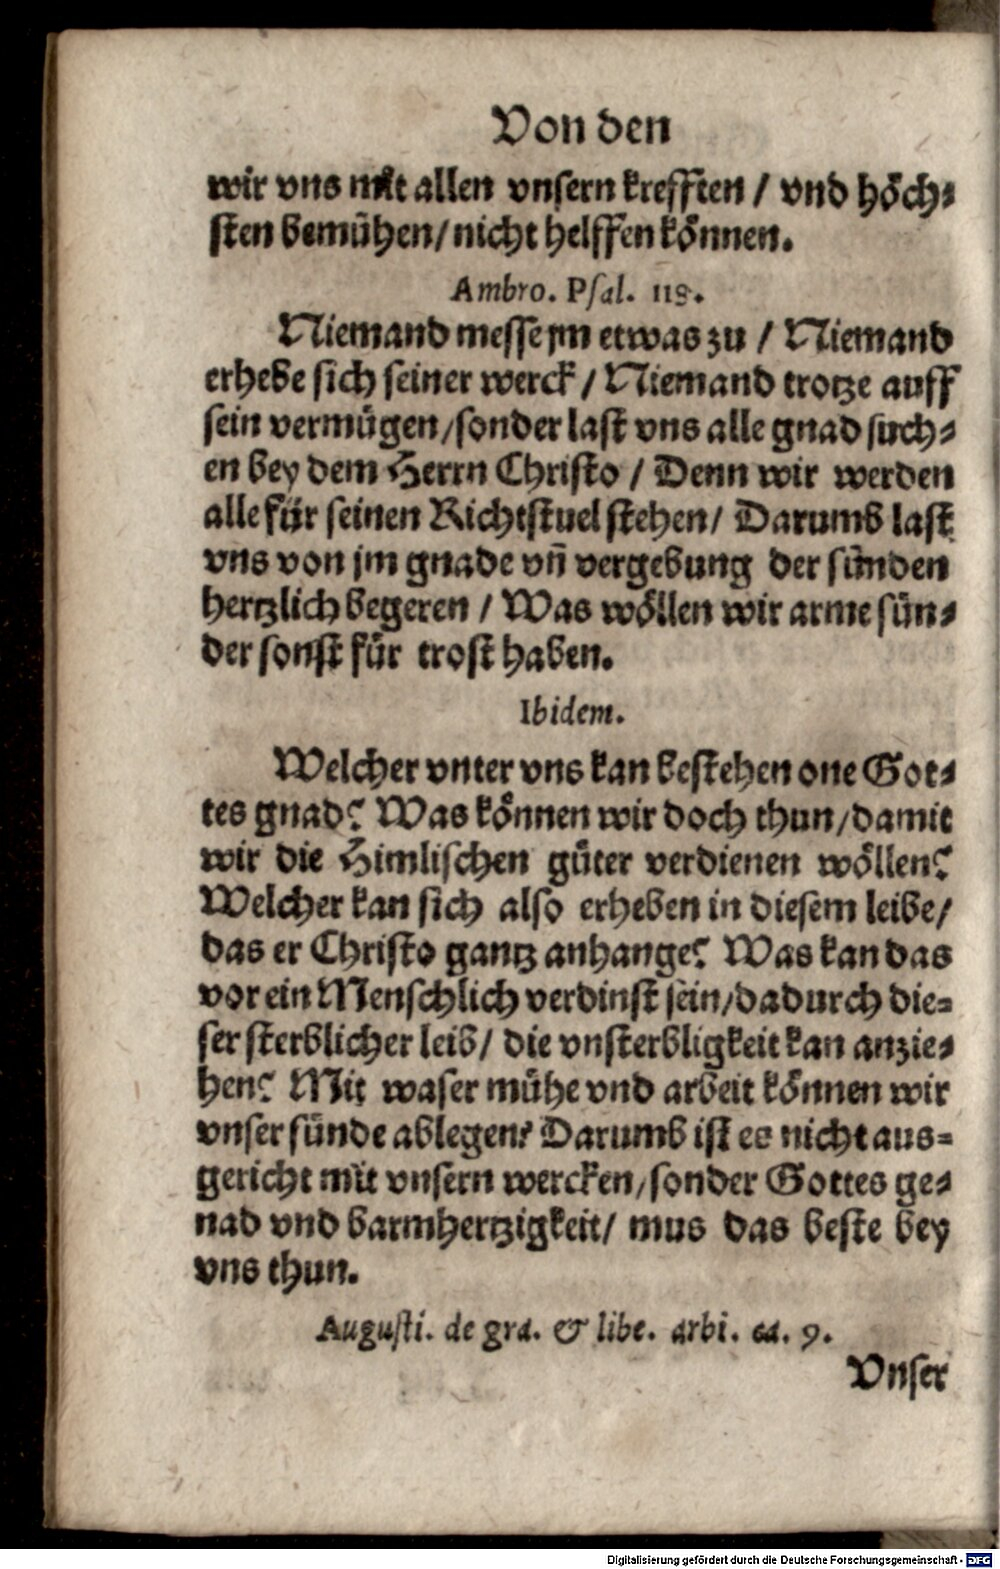 Von den
wir vns mit allen vnsern krefften / vnd höch-
sten bemühen/ nicht helffen können.
Ambro. Psal. 118.
Niemand messe jm etwas zu / Niemand
erhebe sich seiner werck / Niemand trotze auff
sein vermügen/ sonder last vns alle gnad such-
en bey dem Herrn Christo / Denn wir werden
alle für seinen Richtstuel stehen/ Darumb last
vns von jm gnade vñ vergebung der sünden
hertzlich begeren / Was wöllen wir arme sün-
der sonst für trost haben.
Ibidem.
Welcher vnter vns kan bestehen one Got-
tes gnad? Was können wir doch thun/ damit
wir die Himlischen güter verdienen wöllen?
Welcher kan sich also erheben in diesem leibe/
das er Christo gantz anhange? Was kan das
vor ein Menschlich verdinst sein/ dadurch die-
ser sterblicher leib/ die vnsterbligkeit kan anzie-
hen? Mit waser mühe vnd arbeit können wir
vnser sünde ablegen? Darumb ist es nicht aus-
gericht mit vnsern wercken/ sonder Gottes ge-
nad vnd barmhertzigkeit/ mus das beste bey
vns thun.
Augusti. de gra. & libe. arbi. ca. 9.
Vnser
Digitalisierung gefördert durch die Deutsche Forschungsgemeinschaft - DFG